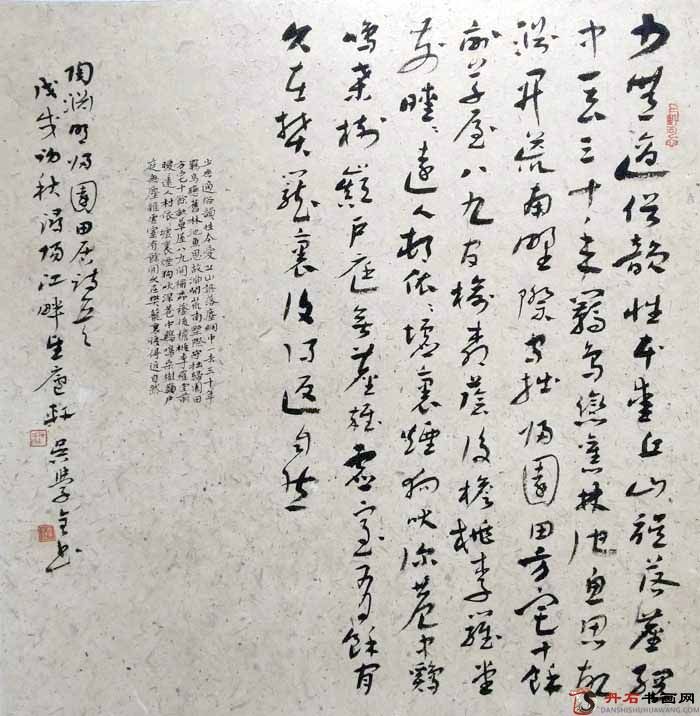 少無適俗韻性本愛丘山誤落塵網
中一去三十年羈鳥戀舊林池魚思故
淵開荒南野際守拙歸園田方宅十餘
畝草屋八九間榆柳蔭後檐桃李羅堂
前曖〻遠人村依〻墟裏煙狗吠深巷中鷄
鳴桑樹巔戶庭無塵雜虛室有餘閒
久在樊籠裏復得返自然
少無適俗韻性本愛丘山誤落塵網中一去三十年
羈鳥戀舊林池魚思故淵開荒南野際守拙歸園田
方宅十餘畝草屋八九間榆柳蔭後檐桃李羅堂前
曖遠人村依墟裏煙狗吠深巷中鷄鳴桑樹巔戶
庭無塵雜虛室有餘閒久在樊籠裏復得返自然
陶淵明歸園田居詩五之
戊戌初秋潯陽江畔軒吳學金書
丹石书画网
DANSHISHUHUAWANG.COM